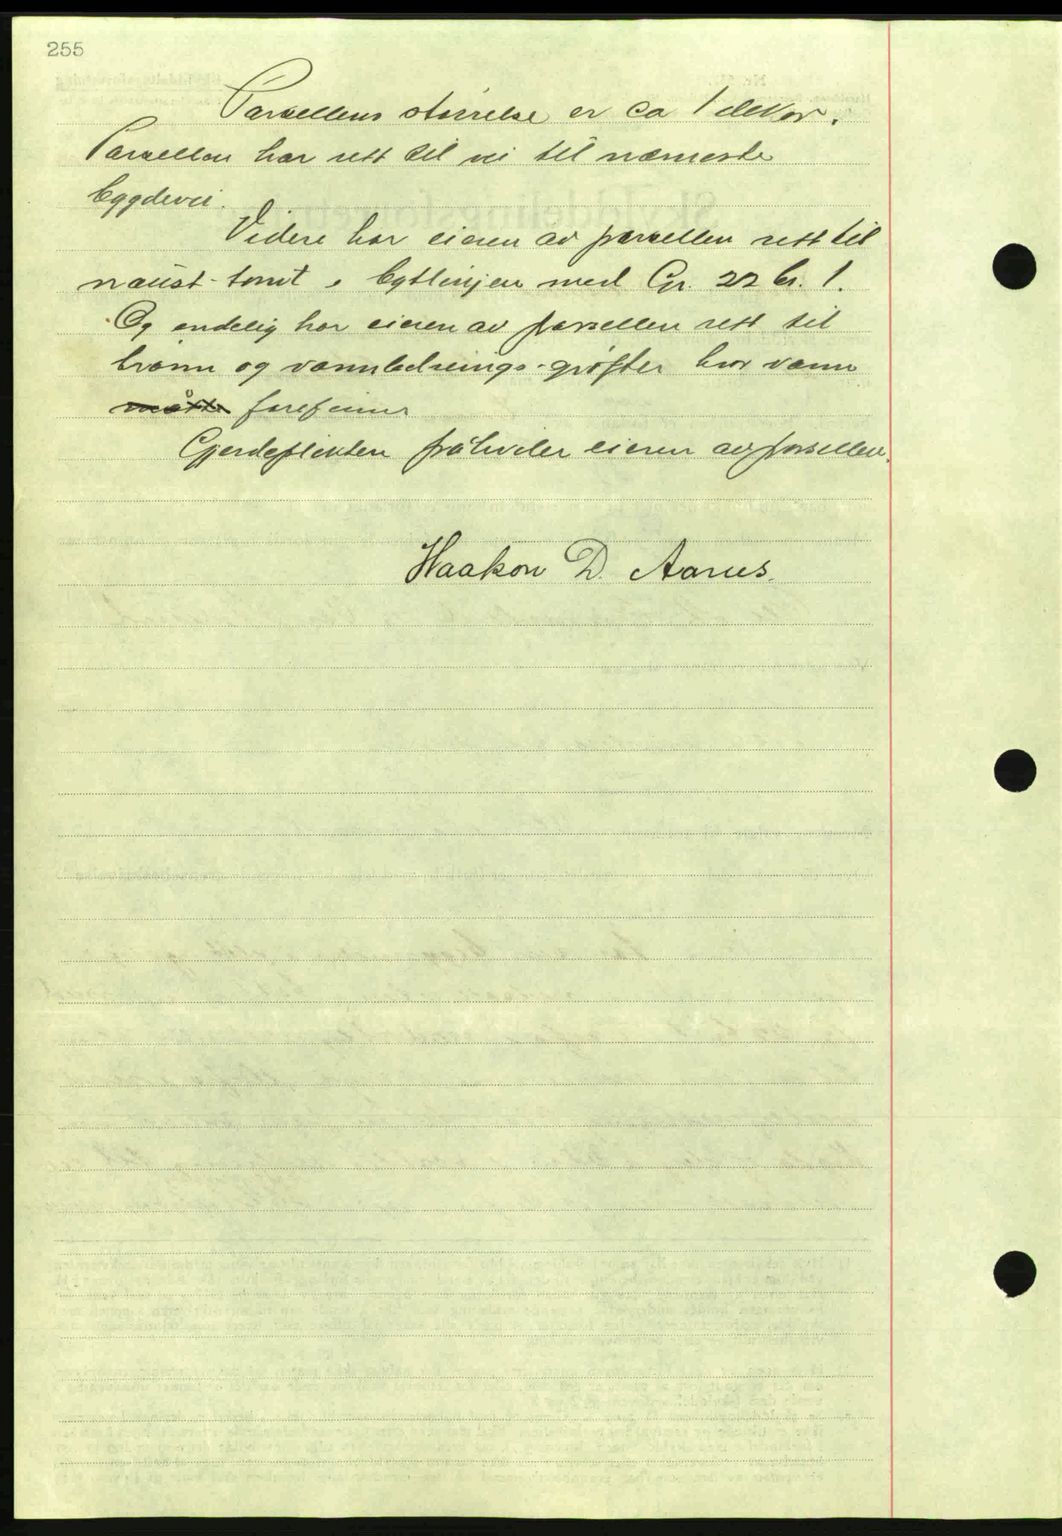 255
Parsellens størrelse er ca 1 dekar.
Parsellen har rett til vei til nærmeste
bygdevei.
Videre har eieren av parsellen rett til
naust-tomt i byttlinjen med Gr. 22 br. 1.
Og endelig har eieren av parsellen rett til
brønn og vannlednings-grøfter hvor vann
måtte forefinnes
Gjerdeplikten påhviler eieren av parsellen.
Haakon D. Aarnes.